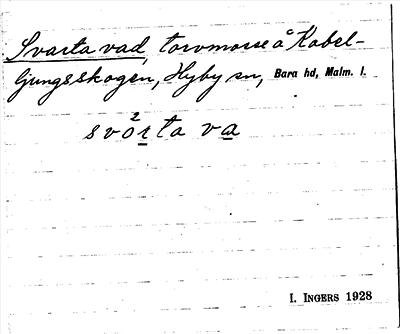 Svarta vad, torvmosse å Kabel-
ljungsskogen, Hyby sn, Bara hd, Malm. l.
svo²rta va
I. INGERS 1928